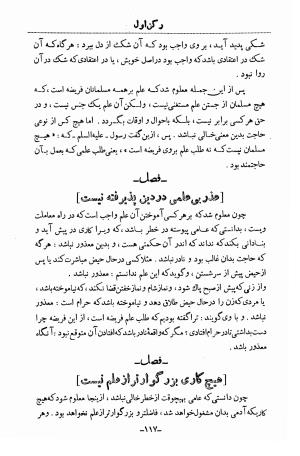 رکن اول
شکی پدید آید، بر وی واجب بود که آن شک از دل ببرد: هرگاه که آن
شک در اعتقادی باشد که واجب بود در اصل خویش، یا در اعتقادی که شک در آن
روا نبود.
پس از این جمله معلوم شد که علم بر همه مسلمانان فریضه است، که
هیچ مسلمان از جستن علم مستغنی نیست، ولکن آن علم یک جنس نیست، و در
حق هر کسی برابر نیست، بلکه باحوال و اوقات بگردد. اما هیچ کس از نوعی
حاجت بدین معنی خالی نباشد. پس، ازین گفت رسول ـ علیه السلم ـ که: «هیچ
مسلمان نیست که نه طلب علم بر وی فریضه است»، یعنی طلب علمی که بعمل آن
حاجتمند بود.
ـ فصل ـ
[عذر بی علمی در دین پذیرفته نیست]
چون معلوم شد که بر هر کسی آموختن آن علم واجب است که در راه معاملت
ویست، بدانستی که عامی پیوسته در خطر باشد، که ویرا کاری در پیش آید و
بنادانی بکند که نداند که اندر آن حکمی هست، و بدین معذور نباشد: هرگه
که حاجت بدان غالب بود و نادر نباشد. مثلا کسی در حال حیض مباشرت کند یا پس
از حیض پیش از سر شستن، و گوید که این علم ندانستم: معذور نباشد.
و از زنی که پیش از صبح پاک شود، و نماز شام و نماز خفتن قضا نکند، که نیاموخته باشد،
یا مردی که زن را در حال حیض طلاق دهد و نیاموخته باشد که حرام است: معذور نباشد
و با وی گویند: ترا گفته بودیم که طلب علم فریضه است، از این فریضه چرا
دست بداشتی تا در حرام افتادی؟ مگر که واقعهٔ نادر باشد که افتادن آن متوقع نبود: آنگاه
معذور باشد.
ـ فصل ـ
[هیچ کاری بزرگوارتر از علم نیست]
چون دانستی که عامی بهیچوقت از خطر خالی نباشد، از ینجا معلوم شود که هیچ
کار که آدمی بدان مشغول خواهد شد، فاضلتر و بزرگوارتر از علم نخواهد بود. و هر
ـ ۱۱۷ ـ